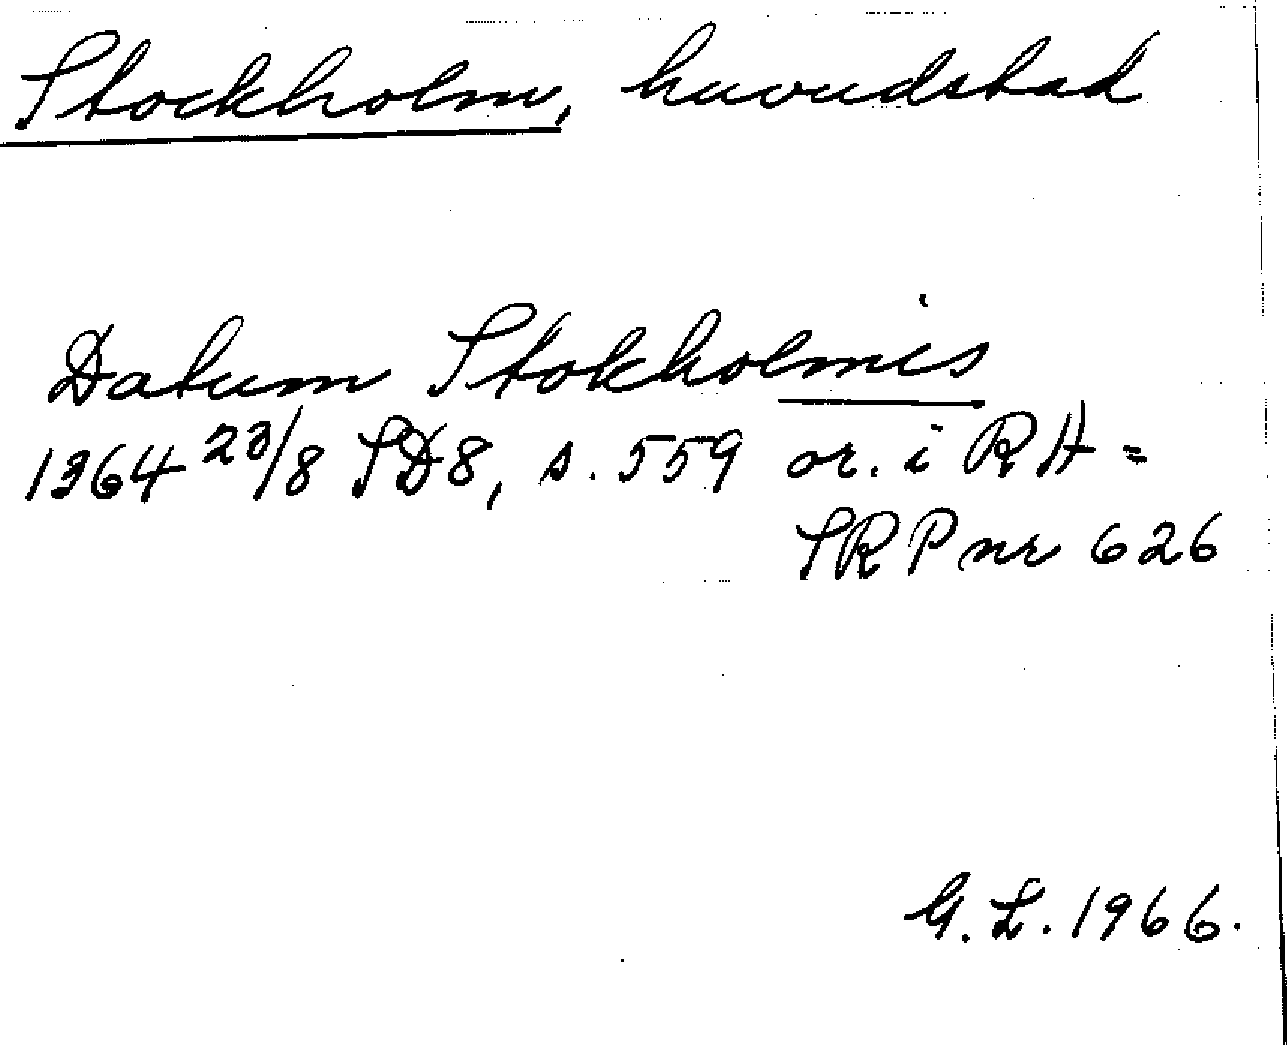 Stockholm, huvudstad
Datum Stokholmis
1364 23/8 SD8, s. 559 or. i RA =
SRP nr 626
G. L. 1966.